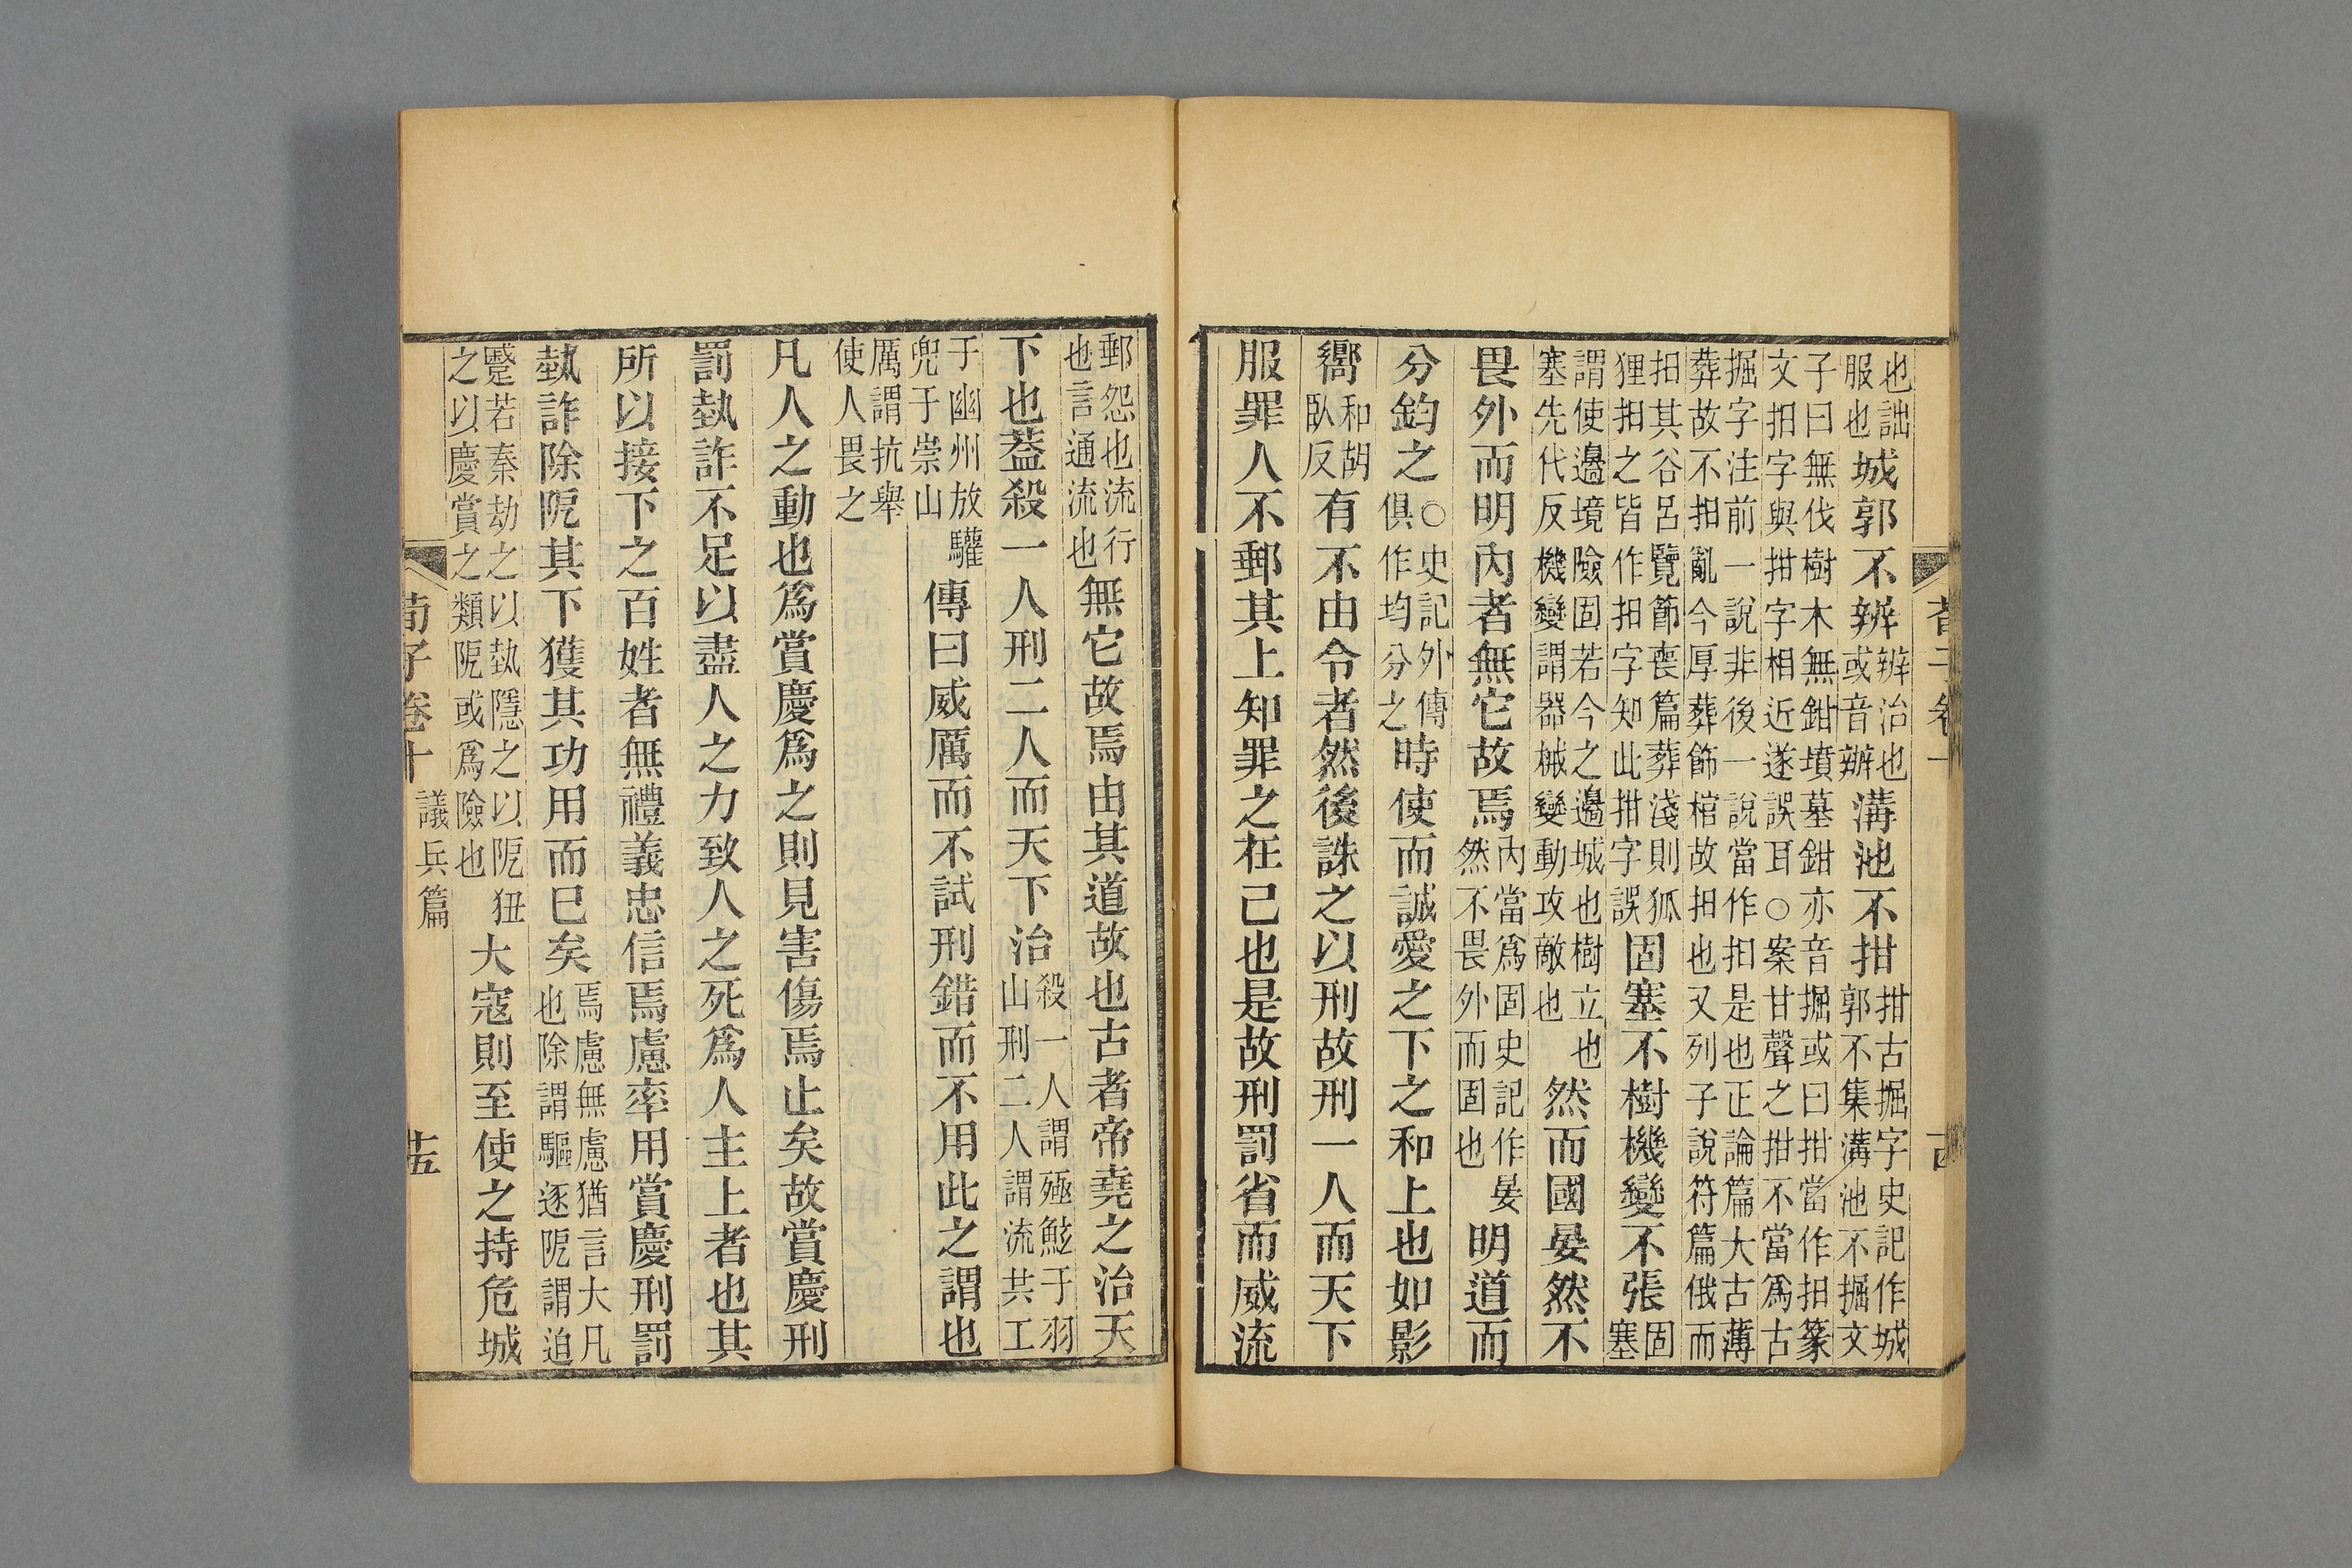 也詘服也城郭不辨辨治也或音辦溝池不拑拑古掘字史記作城郭不集溝池不掘文
子曰無伐樹木無鉗墳墓鉗亦音掘或曰拑當作抇篆文抇字與拑字相近遂誤耳○案甘聲之拑不當爲古
掘字注前一說非後一說當作抇是也正論篇大古薄葬故不抇亂今厚葬飾棺故抇也又列子說符篇俄而
抇其谷呂覽節喪篇葬淺則狐狸抇之皆作抇字知此拑字誤固塞不樹機變不張固塞
謂使邊境險固若今之邊城也樹立也塞先代反機變謂器械變動攻敵也然而國晏然不
畏外而明內者無它故焉內當爲固史記作晏然不畏外而固也明道而
分鈞之○史記外傳俱作均分之時使而誠愛之下之和上也如影
嚮和胡臥反有不由令者然後誅之以刑故刑一人而天下
服罪人不郵其上知罪之在己也是故刑罰省而威流
郵怨也流行也言通流也無它故焉由其道故也古者帝堯之治天
下也葢殺一人刑二人而天下治殺一人謂殛鮌于羽山刑二人謂流共工
于幽州放驩兜于崇山傳曰威厲而不試刑錯而不用此之謂也
厲謂抗舉使人畏之
凡人之動也爲賞慶爲之則見害傷焉止矣故賞慶刑
罰埶詐不足以盡人之力致人之死爲人主上者也其
所以接下之百姓者無禮義忠信焉慮率用賞慶刑罰
埶詐除阸其下獲其功用而已矣焉慮無慮猶言大凡也除謂驅逐阸謂迫
蹙若秦劫之以埶隱之以阸狃之以慶賞之類阸或爲險也大寇則至使之持危城
荀子卷十 議兵篇 十五